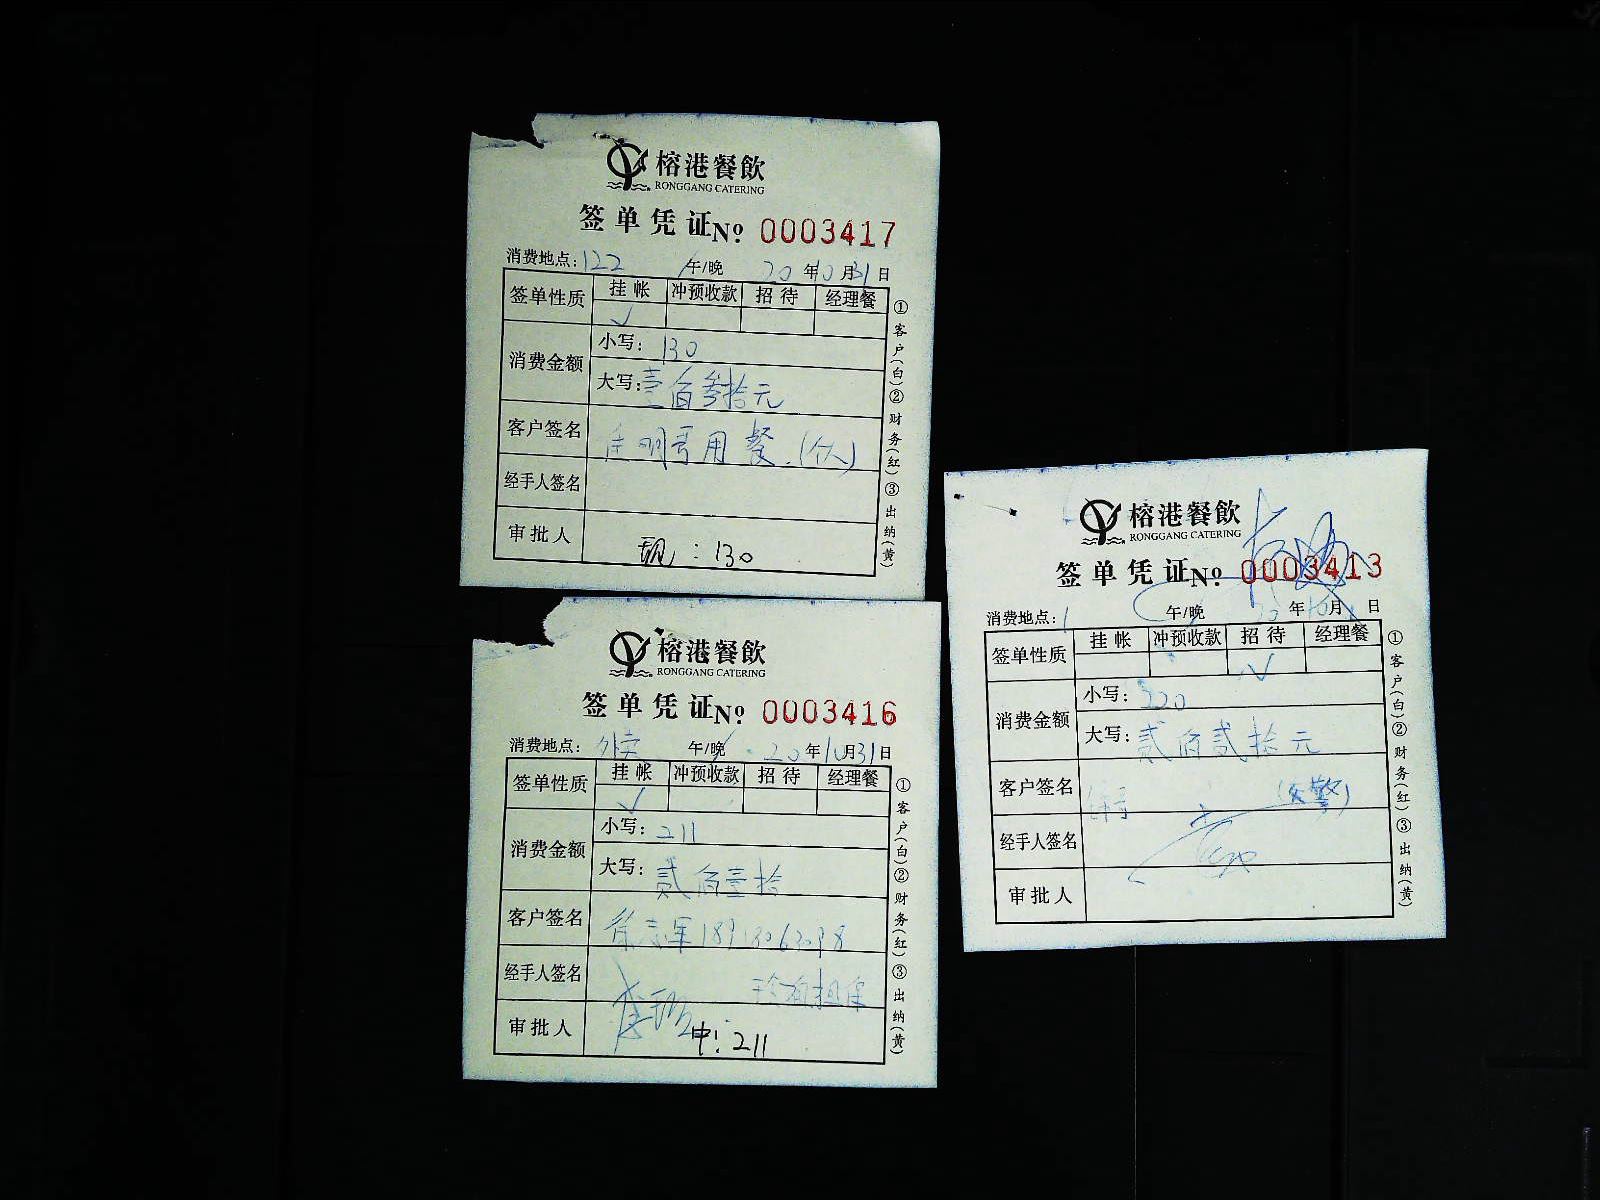 榕港餐飲
RONGGANG CATERING
签单凭证 Nº 0003417
消费地点: 122 午/晚 20年10月31日
签单性质 挂帐 冲预收款 招待 经理餐
✓
消费金额 小写: 130
大写: 壹佰参拾元
客户签名 明哥用餐.(个人)
经手人签名
审批人 : 130
①客户(白)②财务(红)③出纳(黄)
榕港餐飲
RONGGANG CATERING
签单凭证 Nº 0003416
消费地点: 外卖 午/晚 20年10月31日
签单性质 挂帐 冲预收款 招待 经理餐
✓
消费金额 小写: 211
大写: 贰佰壹拾
客户签名 徐志军
经手人签名 担保
审批人 中: 211
①客户(白)②财务(红)③出纳(黄)
榕港餐飲
RONGGANG CATERING
签单凭证 Nº 0003413
消费地点: 午/晚 20年10月 日
签单性质 挂帐 冲预收款 招待 经理餐
✓
消费金额 小写: 220
大写: 贰佰贰拾元
客户签名 (交警)
经手人签名
审批人
①客户(白)②财务(红)③出纳(黄)